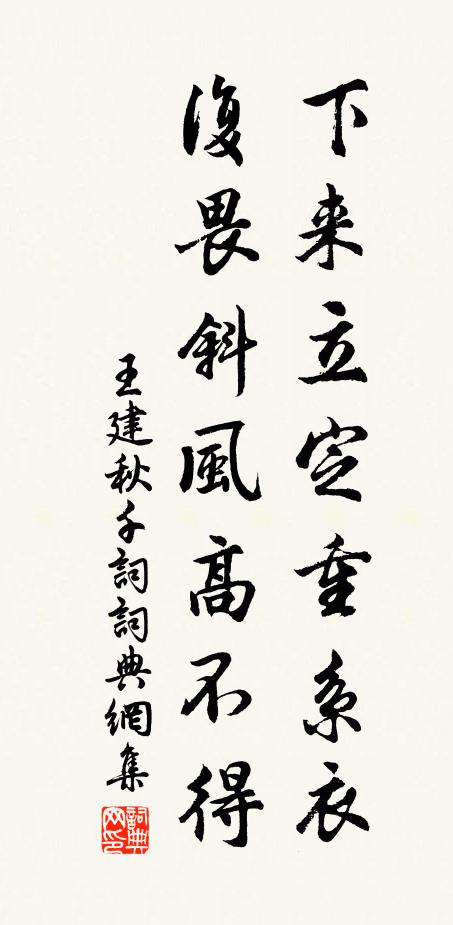 下来立定重系衣
復畏斜風高不得
王建秋千詞詞典網集
詞典
网印